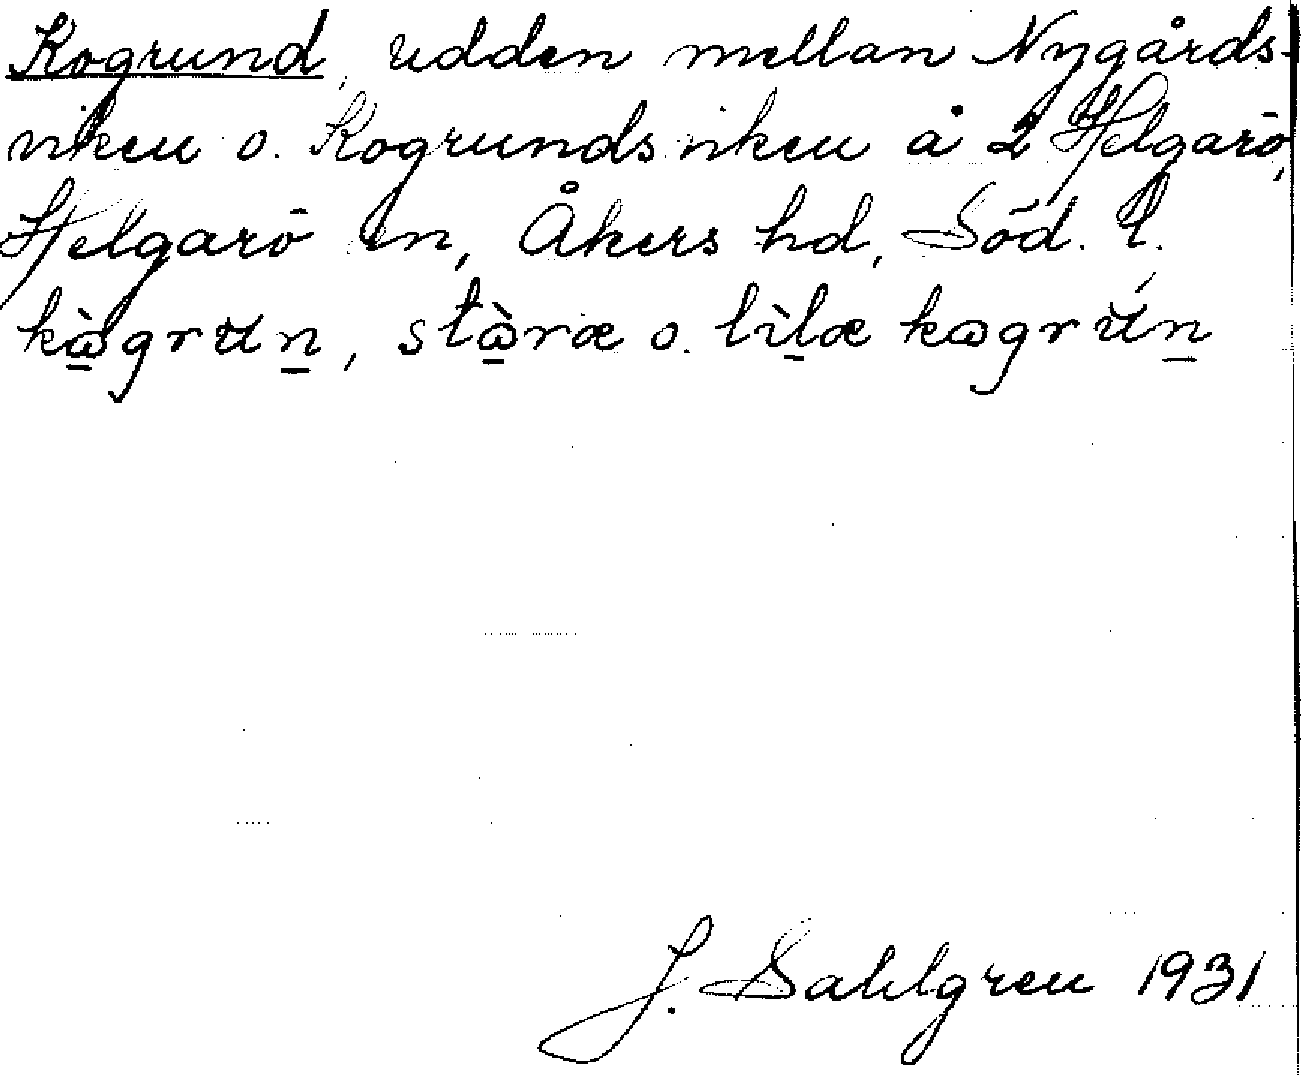 Kogrund, udden mellan Nygårds-
viken o. Kogrundsviken å 2 Helgarö,
Helgarö sn, Åkers hd, Söd. l.
kɷ̀grun, stɷ̀ræ o. lìlæ kɷgrún
J. Sahlgren 1931